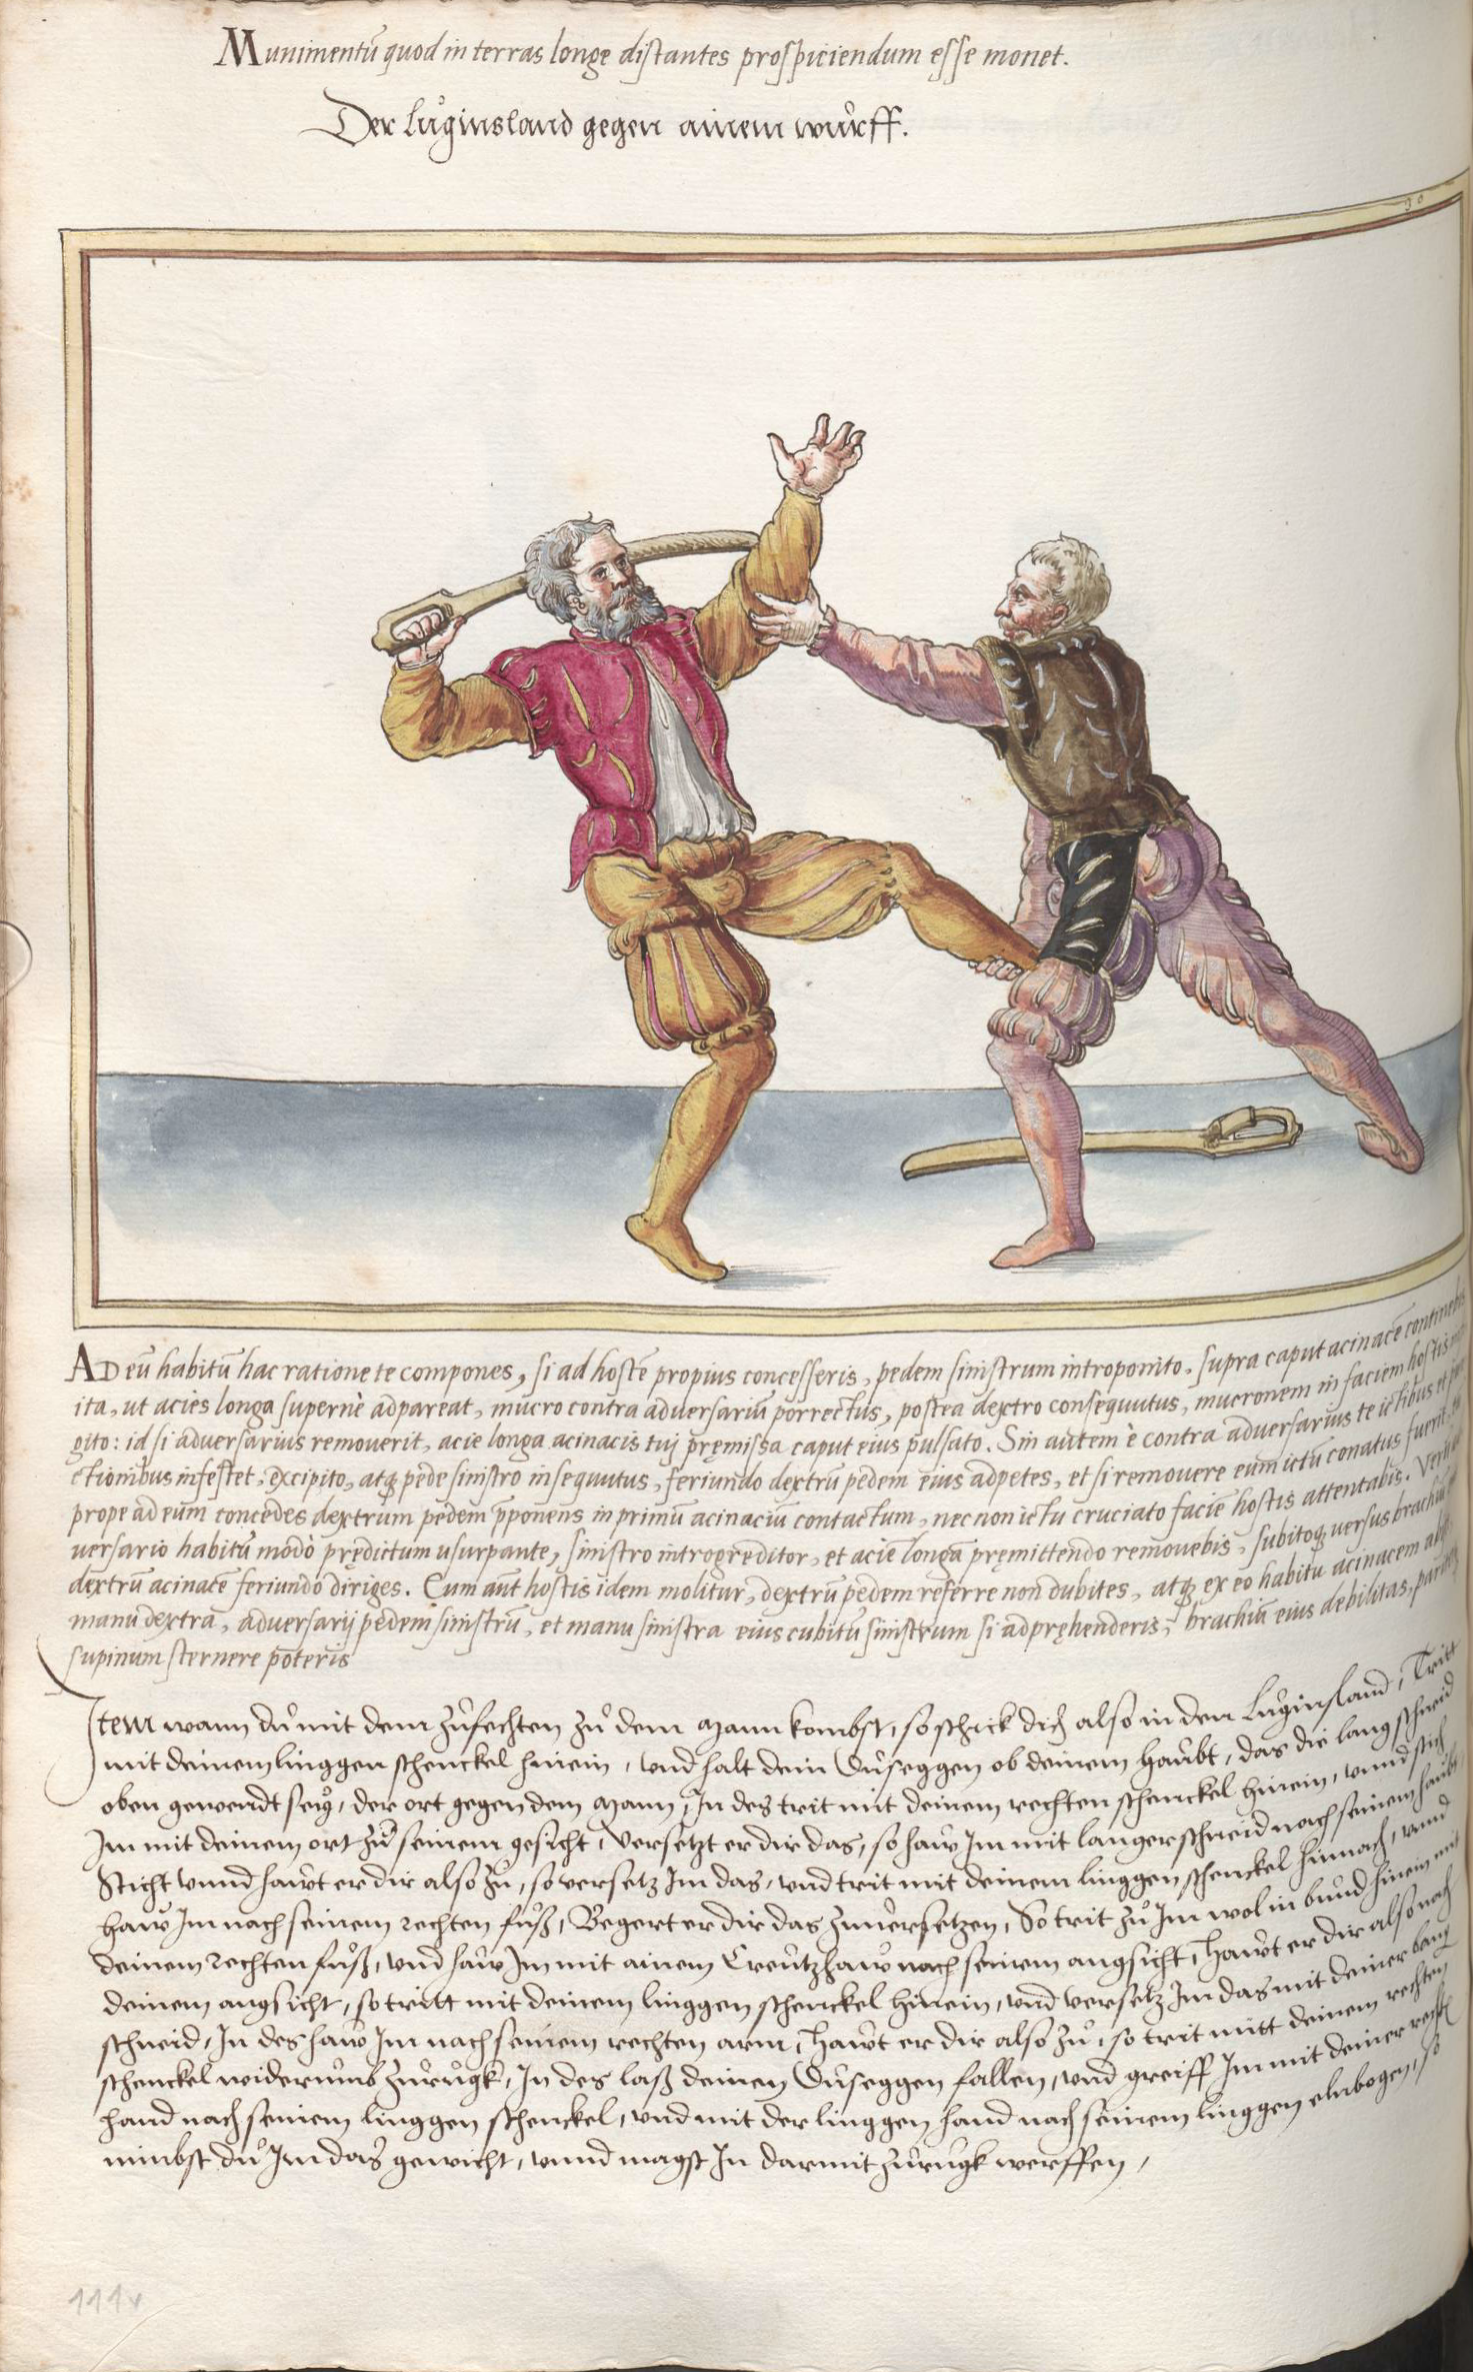 Munimentū quod in terras longe distantes prospiciendum esse monet.
Der lůginsland gegen ainem wůrff.
AD eū habitū hac ratione te compones, si ad hostē propius concesseris, pedem sinistrum introponito. supra caput acinacē
ita, ut acies longa supernè adpareat, mucro contra adversariū porrectus, postea dextro consequutus, mucronem in faciem hostis
gito: id si adversarius removerit, acie longa acinacis tuj pręmissa caput eius pulsato. Sin autem è contra adversarius te ictibus et
ctionibus infestet, excipito, atq; pede sinistro insequutus, feriundo dextrū pedem eius adpetes, et si removere eum ictū conatus fuerit,
prope ad eum concedes dextrum pedem p̄ponens in primū acinaciū contactum, nec non ictu cruciato faciē hostis attentabis.
versario habitū modò prędictum usurpante, sinistro introgreditor, et acie longa pręmittendo removebis, subitoq; versus
dextrū acinacē feriundo diriges. Cum aūt hostis idem molitur, dextrū pedem referre non dubites, atq; ex eo habitu acinacem
manu dextra, adversarij pedem sinistrū, et manu sinistra eius cubitū sinistrum si adpręhenderis, brachiū eius debilitas,
supinum sternere poteris
Item wann dů mit dem zůfechten zů dem Mann kombst, so schick dich also in den Lůginsland, Tritt
mit deinem linggen schenckel hinein, und halt dein Dusęggen ob deinem haubt, das die lang schneid
oben gewendt seiy, der ort gegen dem Mann, In des trit mit deinem rechten schenckel hinein, unnd stich
Im mit deinem ort zů seinem gesicht, versetzt er dir das, so haw Im mit langer schneid nach seinem haubt,
Sticht unnd hawt er dir also zů, so versetz Im das, und trit mit deinem linggen schenckel hinnach, unnd
haw Im nach seinem rechten fůß, Begert er dir das zuversetzen, So trit zů Im wol in bund hinein mit
deinem rechten fůß, und haw Im mit ainem Creutzhaw nach seinem angsicht, hawt er dir also nach
deinem angsicht, so tritt mit deinem linggen schenckel hinein, und versetz Im das mit deiner lang
schneid, In des haw Im nach seinem rechten arm, hawt er dir also zů, so trit mitt deinem rechten
schenckel widerumb zůrůgk, In des laß deinen Duseggen fallen, und greiff Im mit deiner
hand nach seinem linggen schenckel, und mit der linggen hand nach seinem linggen elnbogen, so
nimbst dů Im das gewicht, unnd magst In darmit zůrůgk werffen,
111v